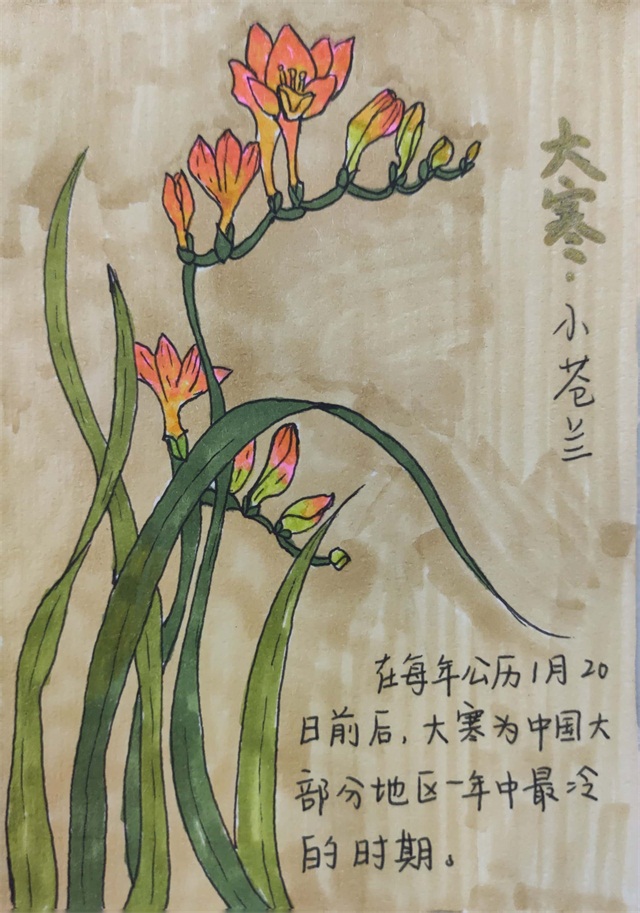 大寒·
小苍兰
在每年公历1月20
日前后,大寒为中国大
部分地区一年中最冷
的时期。